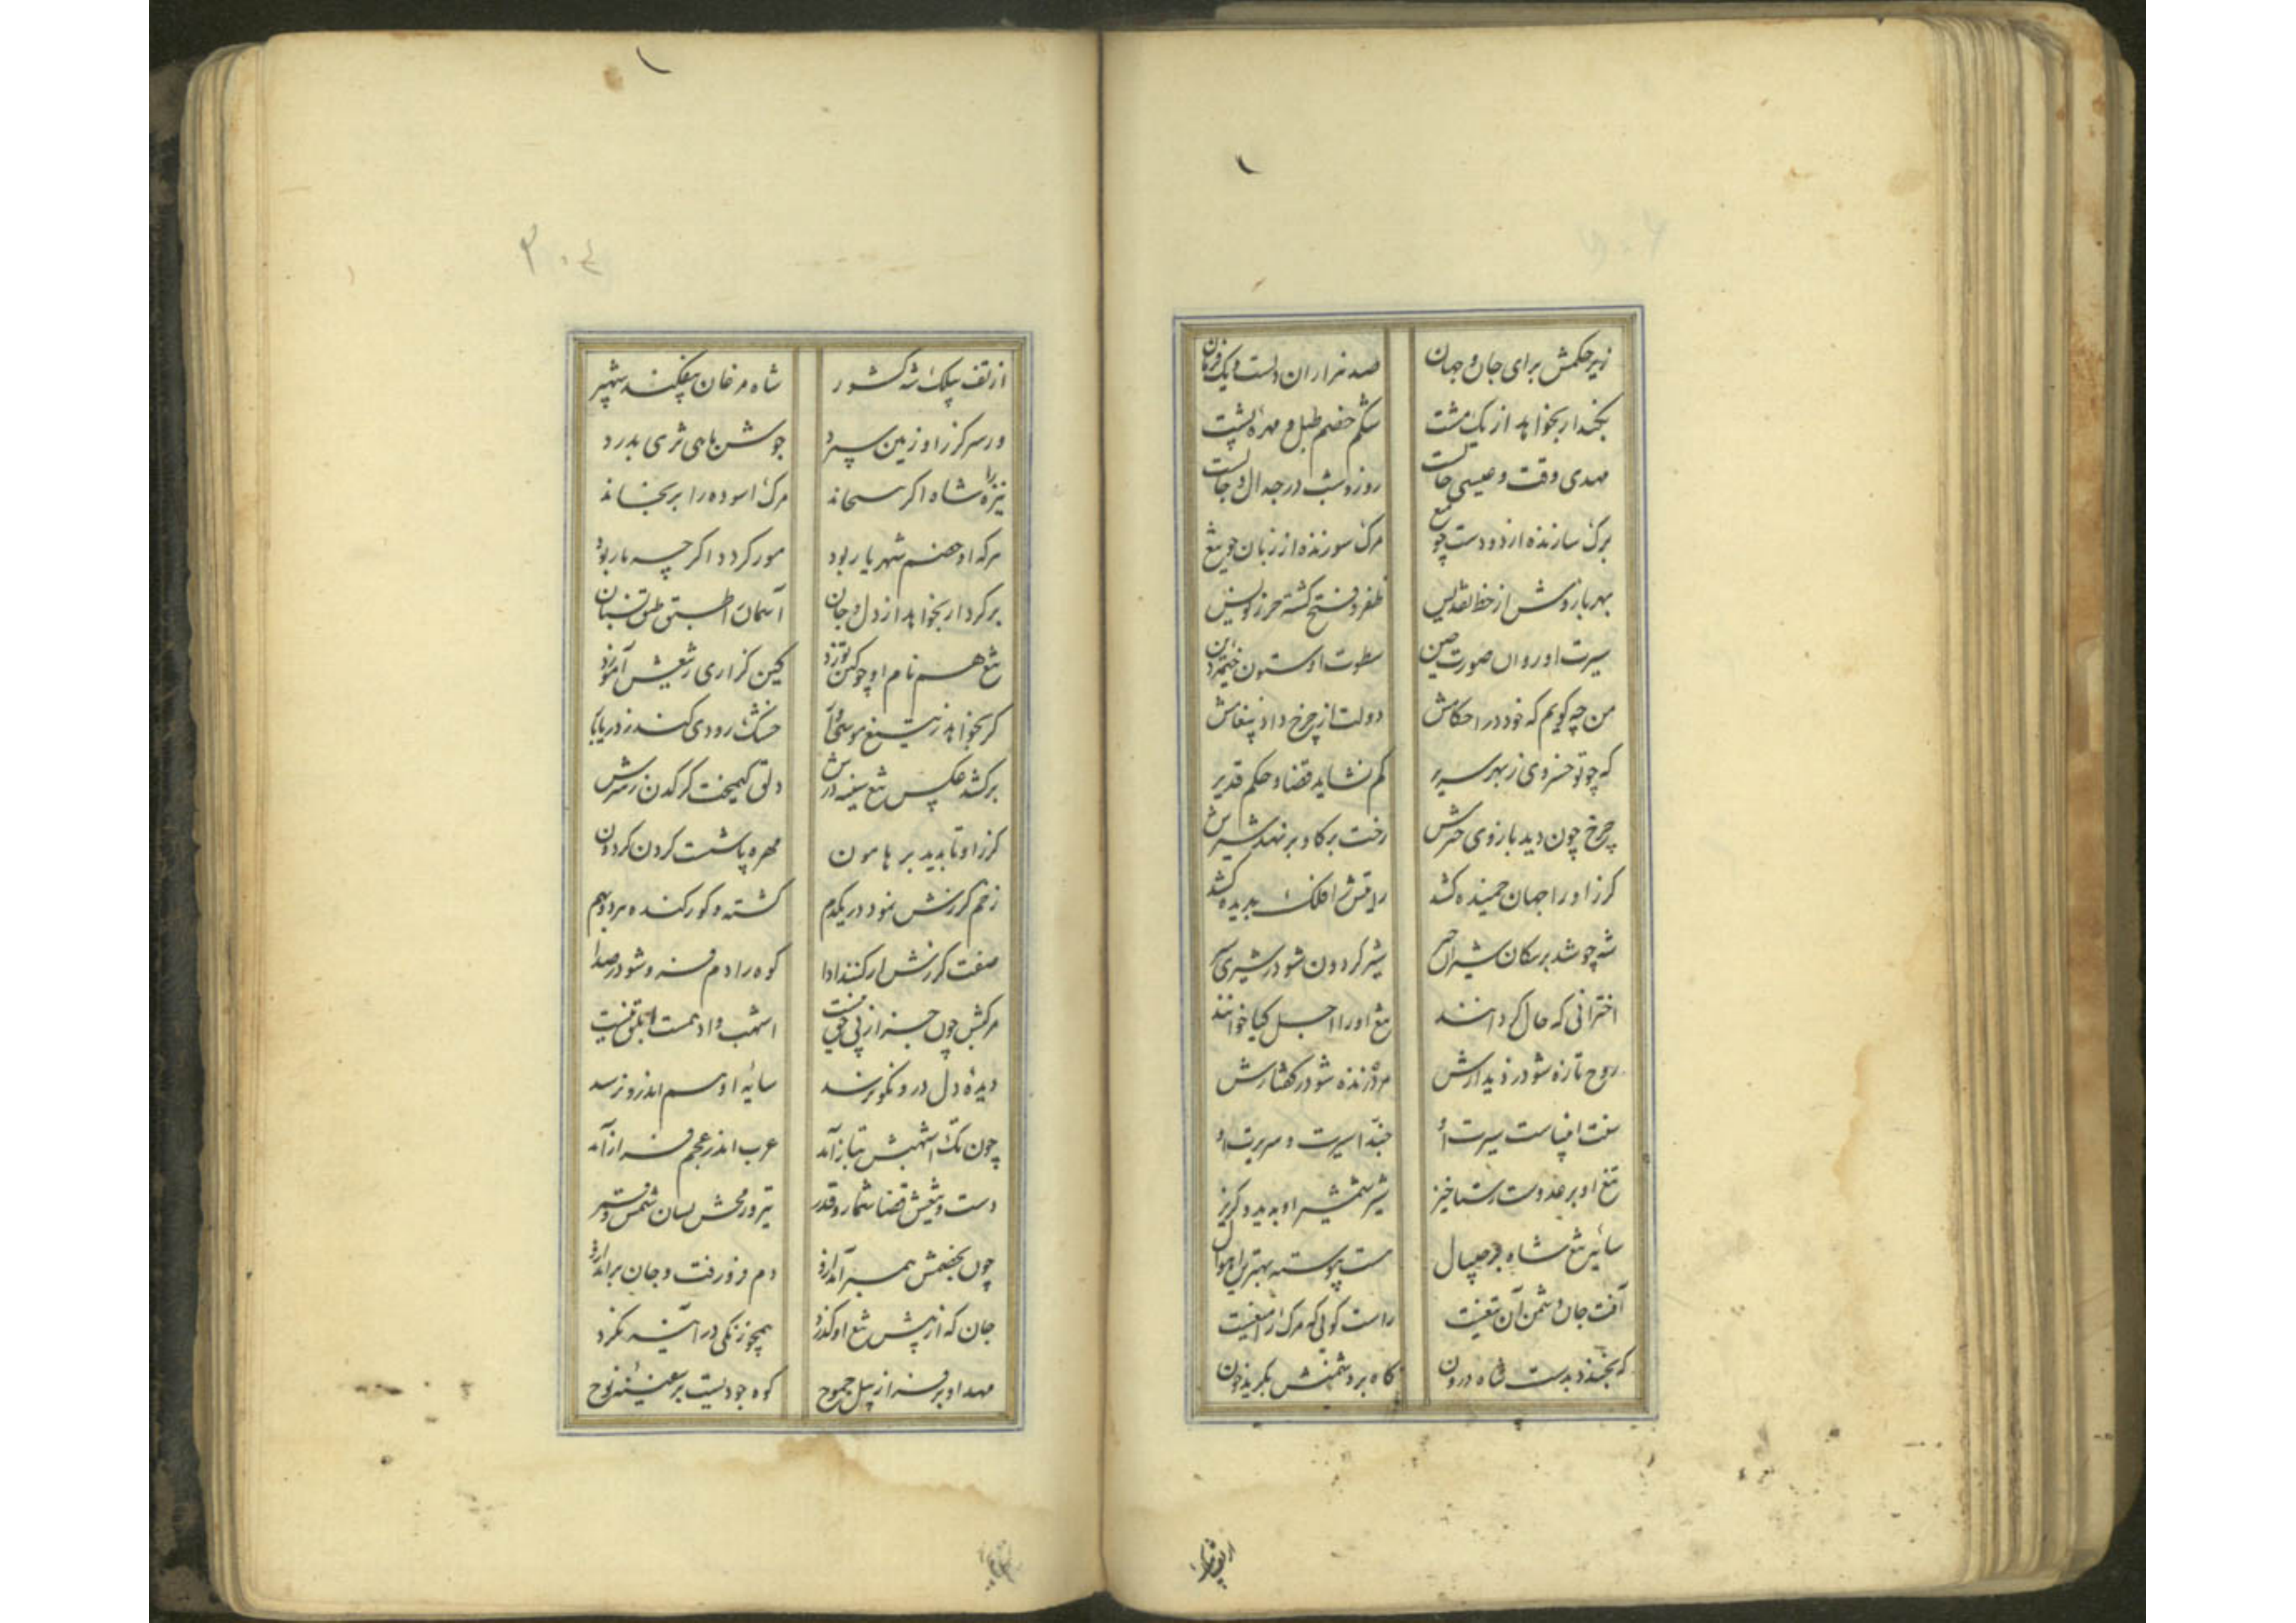 زیر حکمش برای جان و جهان صد هزاران دلست و یک فرمان
بکند ار بخواهد از یک مشت شکم خصم طبل و مهره پشت
مهدی وقت و عیسی حالست روز و شب در جدال دجالست
برک سازنده از دو دست چو میغ مرک سوزنده از زبان چو تیغ
بهر بازوش از خط تقدیس ظفر و فتح کشته حرز نویس
سیرت او روان صورت دین سطوت او ستون خیمه دین
من چه کویم که خود در احکامش دولت از چرخ داد پیغامش
که چو تو خسروی ز بهر سریر کم نشاید قضا و حکم قدیر
چرخ چون دید بازوی حربش رخت بر کاو بر نهد
کرز او را جهان خمیده کشد رایتش را فلک بدیده کشد
شه چو شد بر سکان شیر اجم شیر کردون شود در شیری
اخترانی که حال کرد انند تیغ او را اجل کیا خوانند
روح تازه شود ز دیدارش مرده زنده شود ز کفتارش
سنت انبیاست سیرت او حبذا سیرت و سریرت او
تیغ او بر عدوست رستاخیز شیر شمشیر او بدید و کریز
سایه تیغ شاه بر جیپال هست پیوسته بهترین اهوال
آفت جان دشمن آن تیغست راست کویی که مرک را میغست
که بخندد بدست شاه درون کاه بر دشمنش بکرید خون
از تف
از تف بیلک شه کشور شاه مرغان بیفکند شهپر
ور سر کرز او زمین سپرد جوشن ماهی ثری بدرد
نیزه را شاه اکر بجنباند مرک آسوده را برنجاند
هرکه او خصم شهریار بود مور کردد اکر چه مار بود
برکرد ار بخواهد از دل و جان آسمان را طبق طبق سنان
تیغ هم نام او چو کین توزد کین کزاری ز تیغش آموزد
کر بخواهد ز تیغ موسی آسا خشک رودی کند ز دریا
برکشد عکس تیغ سینه درش دلق کیمخت کرکدن ز سرش
کرز او تا بدید بر هامون مهره پشت کردن کردون
زخم کرزش نمود در یکدم کشته و کور کنده هر دو بهم
صفت کرزش ار کنند ادا کوه را دم فرو شود ز صدا
مرکبش چون جز از پی حق نیست اشهب و ادهمست ابلق نیست
دیده دل در و نکو نرسد سایه او هم اندرو نرسد
چون تک اشهبش بتاز آمد عرب اندر عجم فراز آمد
دست و تیغش قضا شمار و قدر تیر و رمحش بسان شمس و قمر
چون بخصمش همی سر آرد ازو دم فرو رفت و جان بر آرد ازو
جان که از پیش تیغ او کذرد همچو زنکی در آینه نکرد
مهد او بر فراز پیل جموح کوه جودیست بر سفینه نوح